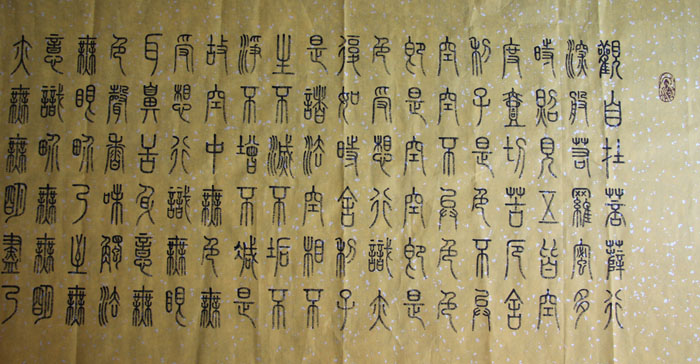 觀自在菩薩行
深般若羅蜜多
時照見五皆空
度壹切苦厄舍
利子是色不異
空空不異色色
即是空空即是
色受想行識亦
復如時舍利子
是諸法空相不
生不滅不垢不
淨不增不減是
故空中無色無
受想行識無眼
耳鼻舌身意無
色聲香味觸法
無眼界乃至無
意識界無無明
亦無無明盡乃